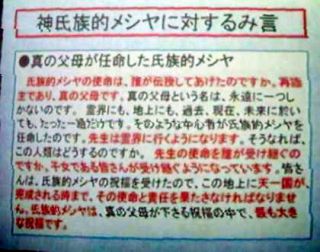 神氏族的メシヤに対するみ言
●真の父母が任命した氏族的メシヤ
氏族的メシヤの使命は、誰が伝授してあげたのですか。再臨
主であり、真の父母です。真の父母という名は、永遠に一つしか
ないのです。霊界にも、地上にも、過去、現在、未来に於い
ても、たった一組だけです。そのような中心者が氏族的メシヤを
任命したのです。先生は霊界に行くようになります。そうなれば、
この人類はどうするのですか。先生の使命を誰が受け継ぐの
です。子女である皆さんが受け継ぐようになっています。皆さ
んは、氏族的メシヤの祝福を受けたので、この地上に天一国が
完成される時まで、その使命と責任を果たさなければなりませ
ん。氏族的メシヤは、真の父母が下さる祝福の中で、最も大き
な祝福です。